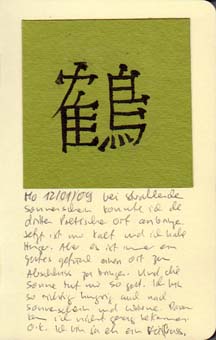 鶴
Mo 12/01/09 bei strahlende
Sonnenschein konnte ich de
dritten Poetische Ort anbringe.
Jetzt ist mir kalt und ich habe
Hunger. Aber es ist immer ein
gutes Gefühl einen Ort zum
Abschluss zu bringen. Und die
Sonne tut mir so gut. Ich bin
so richtig hungrig auch nach
Sonnenschein und Wärme. Davon
kann ich nicht genug bekommen.
O.k. Ich bin ja eh ein